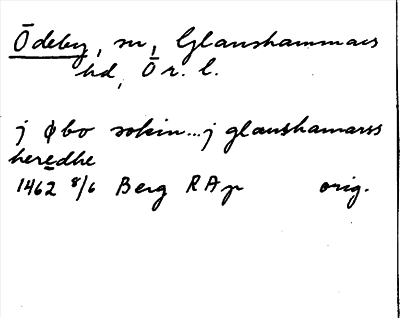 Ödeby, sn, Glanshammars
hd, Ör. l.
j øbo sokin... j glanshamarss
heredhe
1462 8/6 Berg RAp orig.